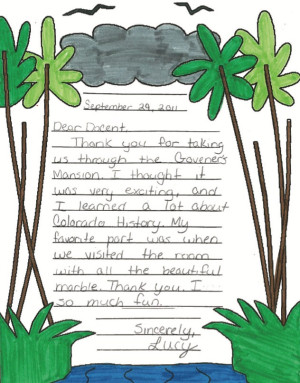 September 29, 2011
Dear Docent,
Thank you for taking
us through the Govener's
Mansion. I thought it
was very exciting, and
I learned a lot about
Colorado History. My
favorite part was when
we visited the room
with all the beautiful
marble. Thank you. I
so much fun.
Sincerely,
Lucy